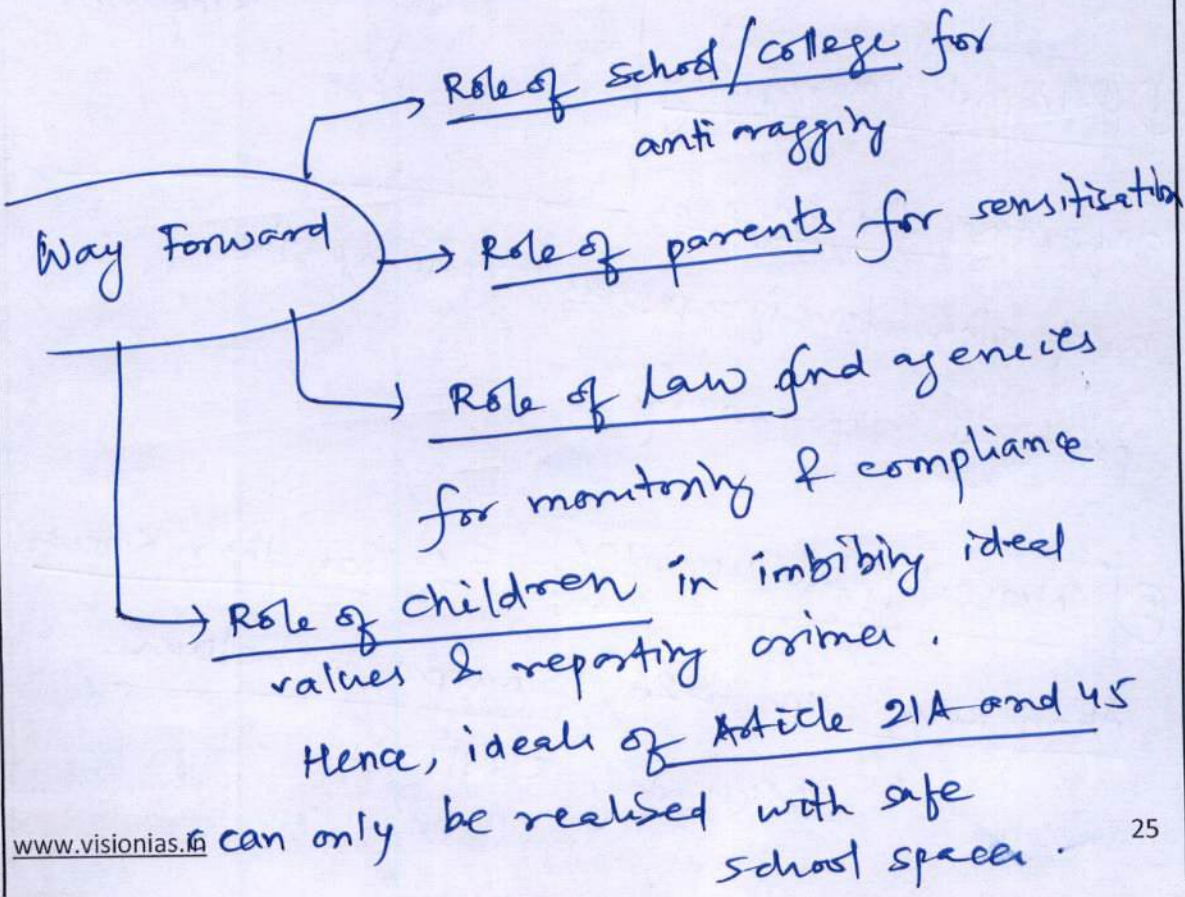 Role of school/college for
anti ragging
Way Forward
Role of parents for sensitisation
Role of law and agencies
for monitoring & compliance
Role of children in imbibing ideal
values & reporting crimes.
Hence, ideals of Article 21A and 45
can only be realised with safe
school spaces.
www.visionias.in
25